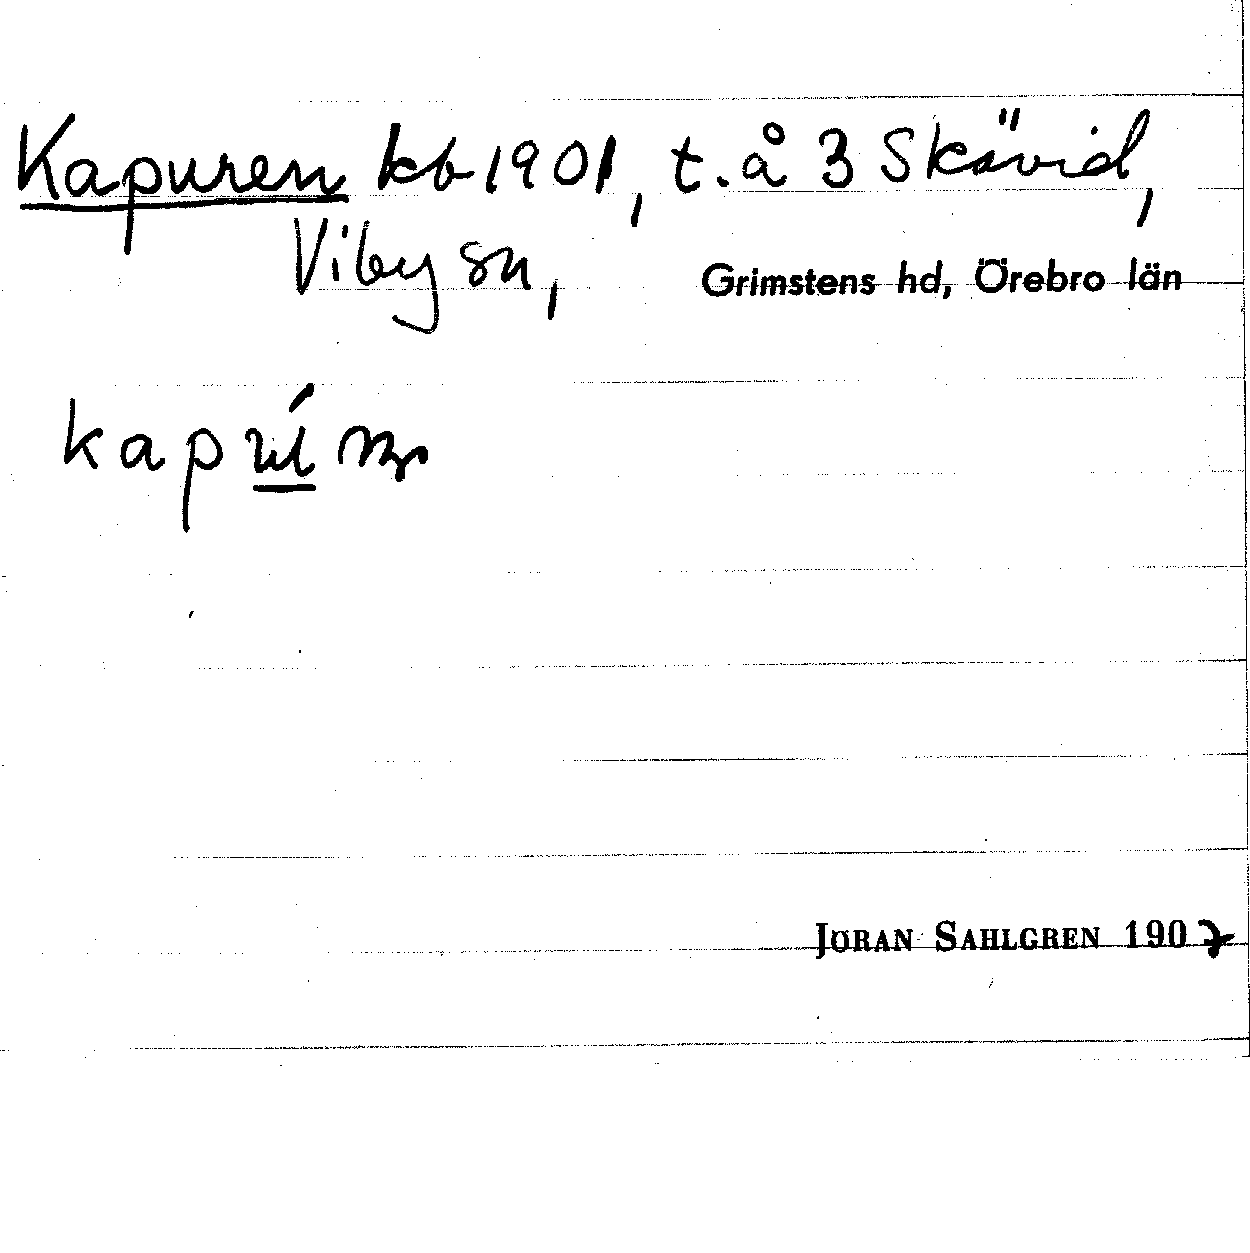 Kapuren kb 1901, t. å 3 Skävid,
Viby sn, Grimstens hd, Örebro län
JÖRAN SAHLGREN 1907